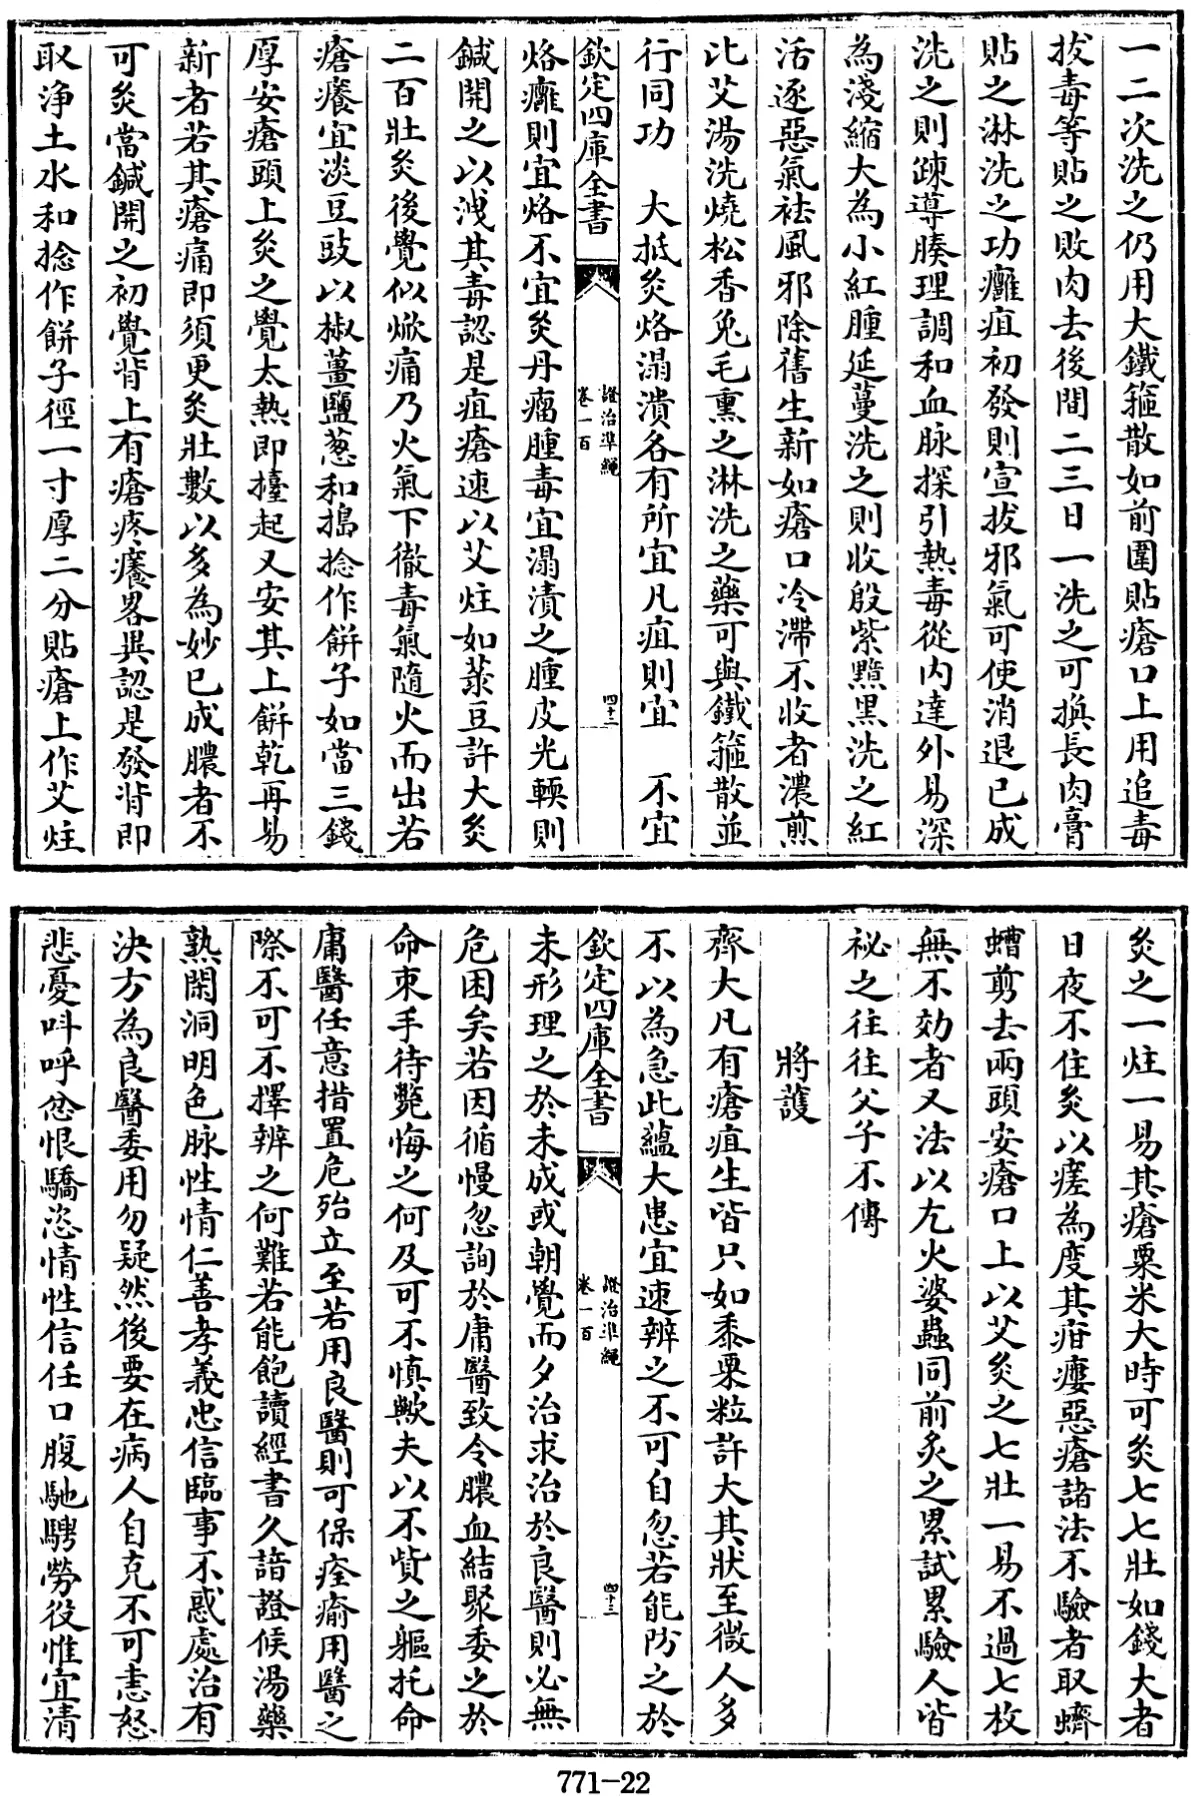 一二次洗之仍用大鐵箍散如前圍貼瘡口上用追毒
拔毒等貼之敗肉去後間二三日一洗之可換長肉膏
貼之淋洗之功癰疽初發則宣拔邪氣可使消退已成
洗之則疎導腠理調和血脉探引熱毒從内達外易深
為淺縮大為小紅腫延蔓洗之則收殷紫黯黒洗之紅
活逐惡氣袪風邪除舊生新如瘡口冷滯不收者濃煎
比艾湯洗燒松香兎毛熏之淋洗之藥可與鐵箍散並
行同功　大抵灸烙溻漬各有所宜凡疽則宜　不宜
欽定四庫全書
證治準繩
卷一百
四十二
烙癰則宜烙不宜灸丹瘤腫毒宜溻漬之腫皮光輭則
鍼開之以洩其毒認是疽瘡速以艾炷如菉豆許大灸
二百壯灸後覺似焮痛乃火氣下徹毒氣隨火而出若
瘡癢宜淡豆豉以椒薑鹽葱和搗捻作餅子如當三錢
厚安瘡頭上灸之覺太熱即擡起又安其上餅乾再易
新者若其瘡痛即須更灸壯數以多為妙已成膿者不
可灸當鍼開之初覺背上有瘡疼癢畧異認是發背即
取浄土水和捻作餅子徑一寸厚二分貼瘡上作艾炷
灸之一炷一易其瘡粟米大時可灸七七壯如錢大者
日夜不住灸以瘥為度其疳瘻惡瘡諸法不驗者取蠐
螬剪去兩頭安瘡口上以艾灸之七壯一易不過七枚
無不効者又法以尢火婆蟲同前灸之累試累驗人皆
祕之往往父子不傳
將䕶
齊大凡有瘡疽生皆只如黍粟粒許大其狀至微人多
不以為急此蘊大患宜速辨之不可自忽若能防之於
欽定四庫全書
證治準繩
卷一百
四十三
未形理之於未成或朝覺而夕治求治於良醫則必無
危困矣若因循慢忽詢於庸醫致令膿血結聚委之於
命束手待斃悔之何及可不慎歟夫以不貲之軀托命
庸醫任意措置危殆立至若用良醫則可保痊瘉用醫之
際不可不擇辨之何難若能飽讀經書久諳證候湯藥
熟閑洞明色脉性情仁善孝義忠信臨事不惑處治有
決方為良醫委用勿疑然後要在病人自克不可恚怒
悲憂呌呼忿恨驕恣情性信任口腹馳騁勞役惟宜清
771-22